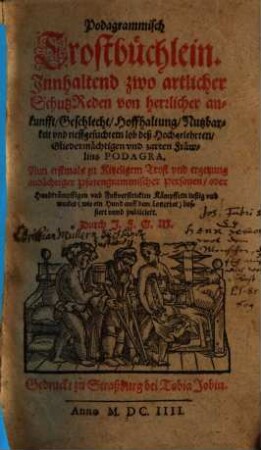 Podagrammisch
Trostbüchlein.
Innhaltend zwo artlicher
SchutzReden von herrlicher an-
kunfft/ Geschlecht/ Hoffhaltung/ Nutzbar-
keit vnd tieffgesuchtem lob deß Hochgelehrten/
Gliedermächtigen vnd zarten Fräw-
lins PODAGRA.
Nun erstmals zu Kitzeligem Trost vnd ergetzung
andächtiger Personen/ oder
Handkrämpffigen vnd Kämpffern lustig vnd
wacker (wie ein Hund auff dem Lotterbet) bos-
siert vnd publiciert.
Durch J. F. G. M.
Getruckt zu Straßburg bei Tobia Jobin.
Anno M. DC. IIII.